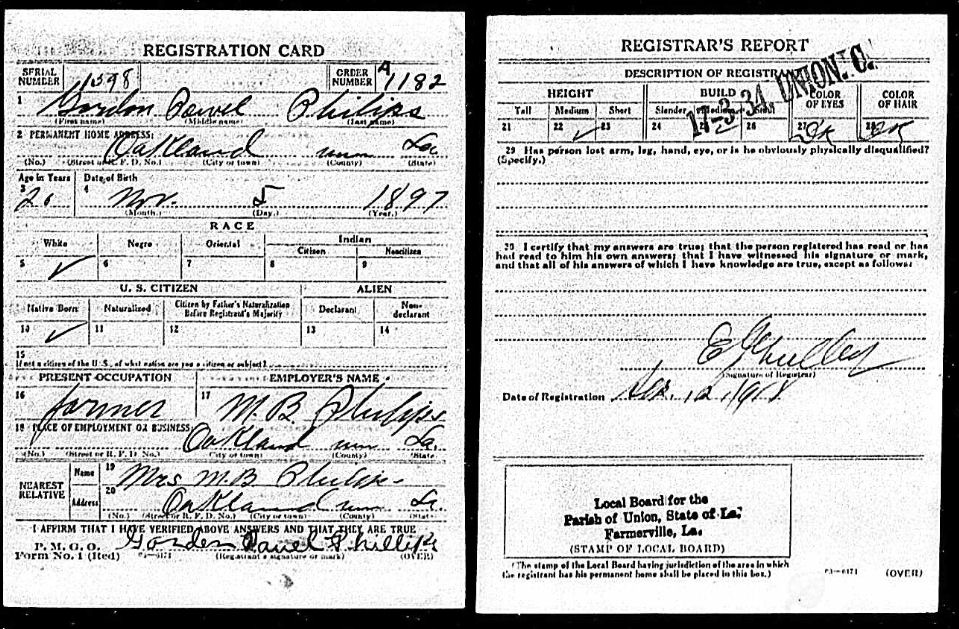 REGISTRATION CARD
SERIAL NUMBER 1598 ORDER NUMBER A1182
1 Gordon Powel Philips
(First name) (Middle name) (Last name)
2 PERMANENT HOME ADDRESS:
Oakland Union La
(No.) (Street or R. F. D. No.) (City or town) (County) (State)
Age in Years Date of Birth
3 20 4 Nov. 5 1897
(Month.) (Day.) (Year.)
RACE
White Negro Oriental Indian
Citizen Noncitizen
5 ✓ 6 7 8 9
U. S. CITIZEN ALIEN
Native Born Naturalized Citizen by Father's Naturalization Before Registrant's Majority Declarant Non-declarant
10 ✓ 11 12 13 14
15
If not a citizen of the U. S., of what nation are you a citizen or subject?
PRESENT OCCUPATION EMPLOYER'S NAME
16 farmer 17 M. B. Philips
18 PLACE OF EMPLOYMENT OR BUSINESS:
Oakland Union La.
(No.) (Street or R. F. D. No.) (City or town) (County) (State)
NEAREST RELATIVE
Name 19 Mrs M. B. Philips
Address 20 Oakland Union La.
(No.) (Street or R. F. D. No.) (City or town) (County) (State)
I AFFIRM THAT I HAVE VERIFIED ABOVE ANSWERS AND THAT THEY ARE TRUE
P. M. G. O.
Form No. 1 (Red) Gorden Phillips
(Registrant's signature or mark) (OVER)
REGISTRAR'S REPORT
17-3-34. UNION. C.
DESCRIPTION OF REGISTRANT
HEIGHT BUILD COLOR OF EYES COLOR OF HAIR
Tall Medium Short Slender Medium
21 22 ✓ 23 24 26 27 28
29 Has person lost arm, leg, hand, eye, or is he obviously physically disqualified?
(Specify.)
30 I certify that my answers are true; that the person registered has read or has
had read to him his own answers; that I have witnessed his signature or mark,
and that all of his answers of which I have knowledge are true, except as follows:
(Signature of Registrar)
Date of Registration 12, 1918
Local Board for the
Parish of Union, State of La.
Farmerville, La.
(STAMP OF LOCAL BOARD)
(The stamp of the Local Board having jurisdiction of the area in which
the registrant has his permanent home shall be placed in this box.)
03-6171 (OVER)